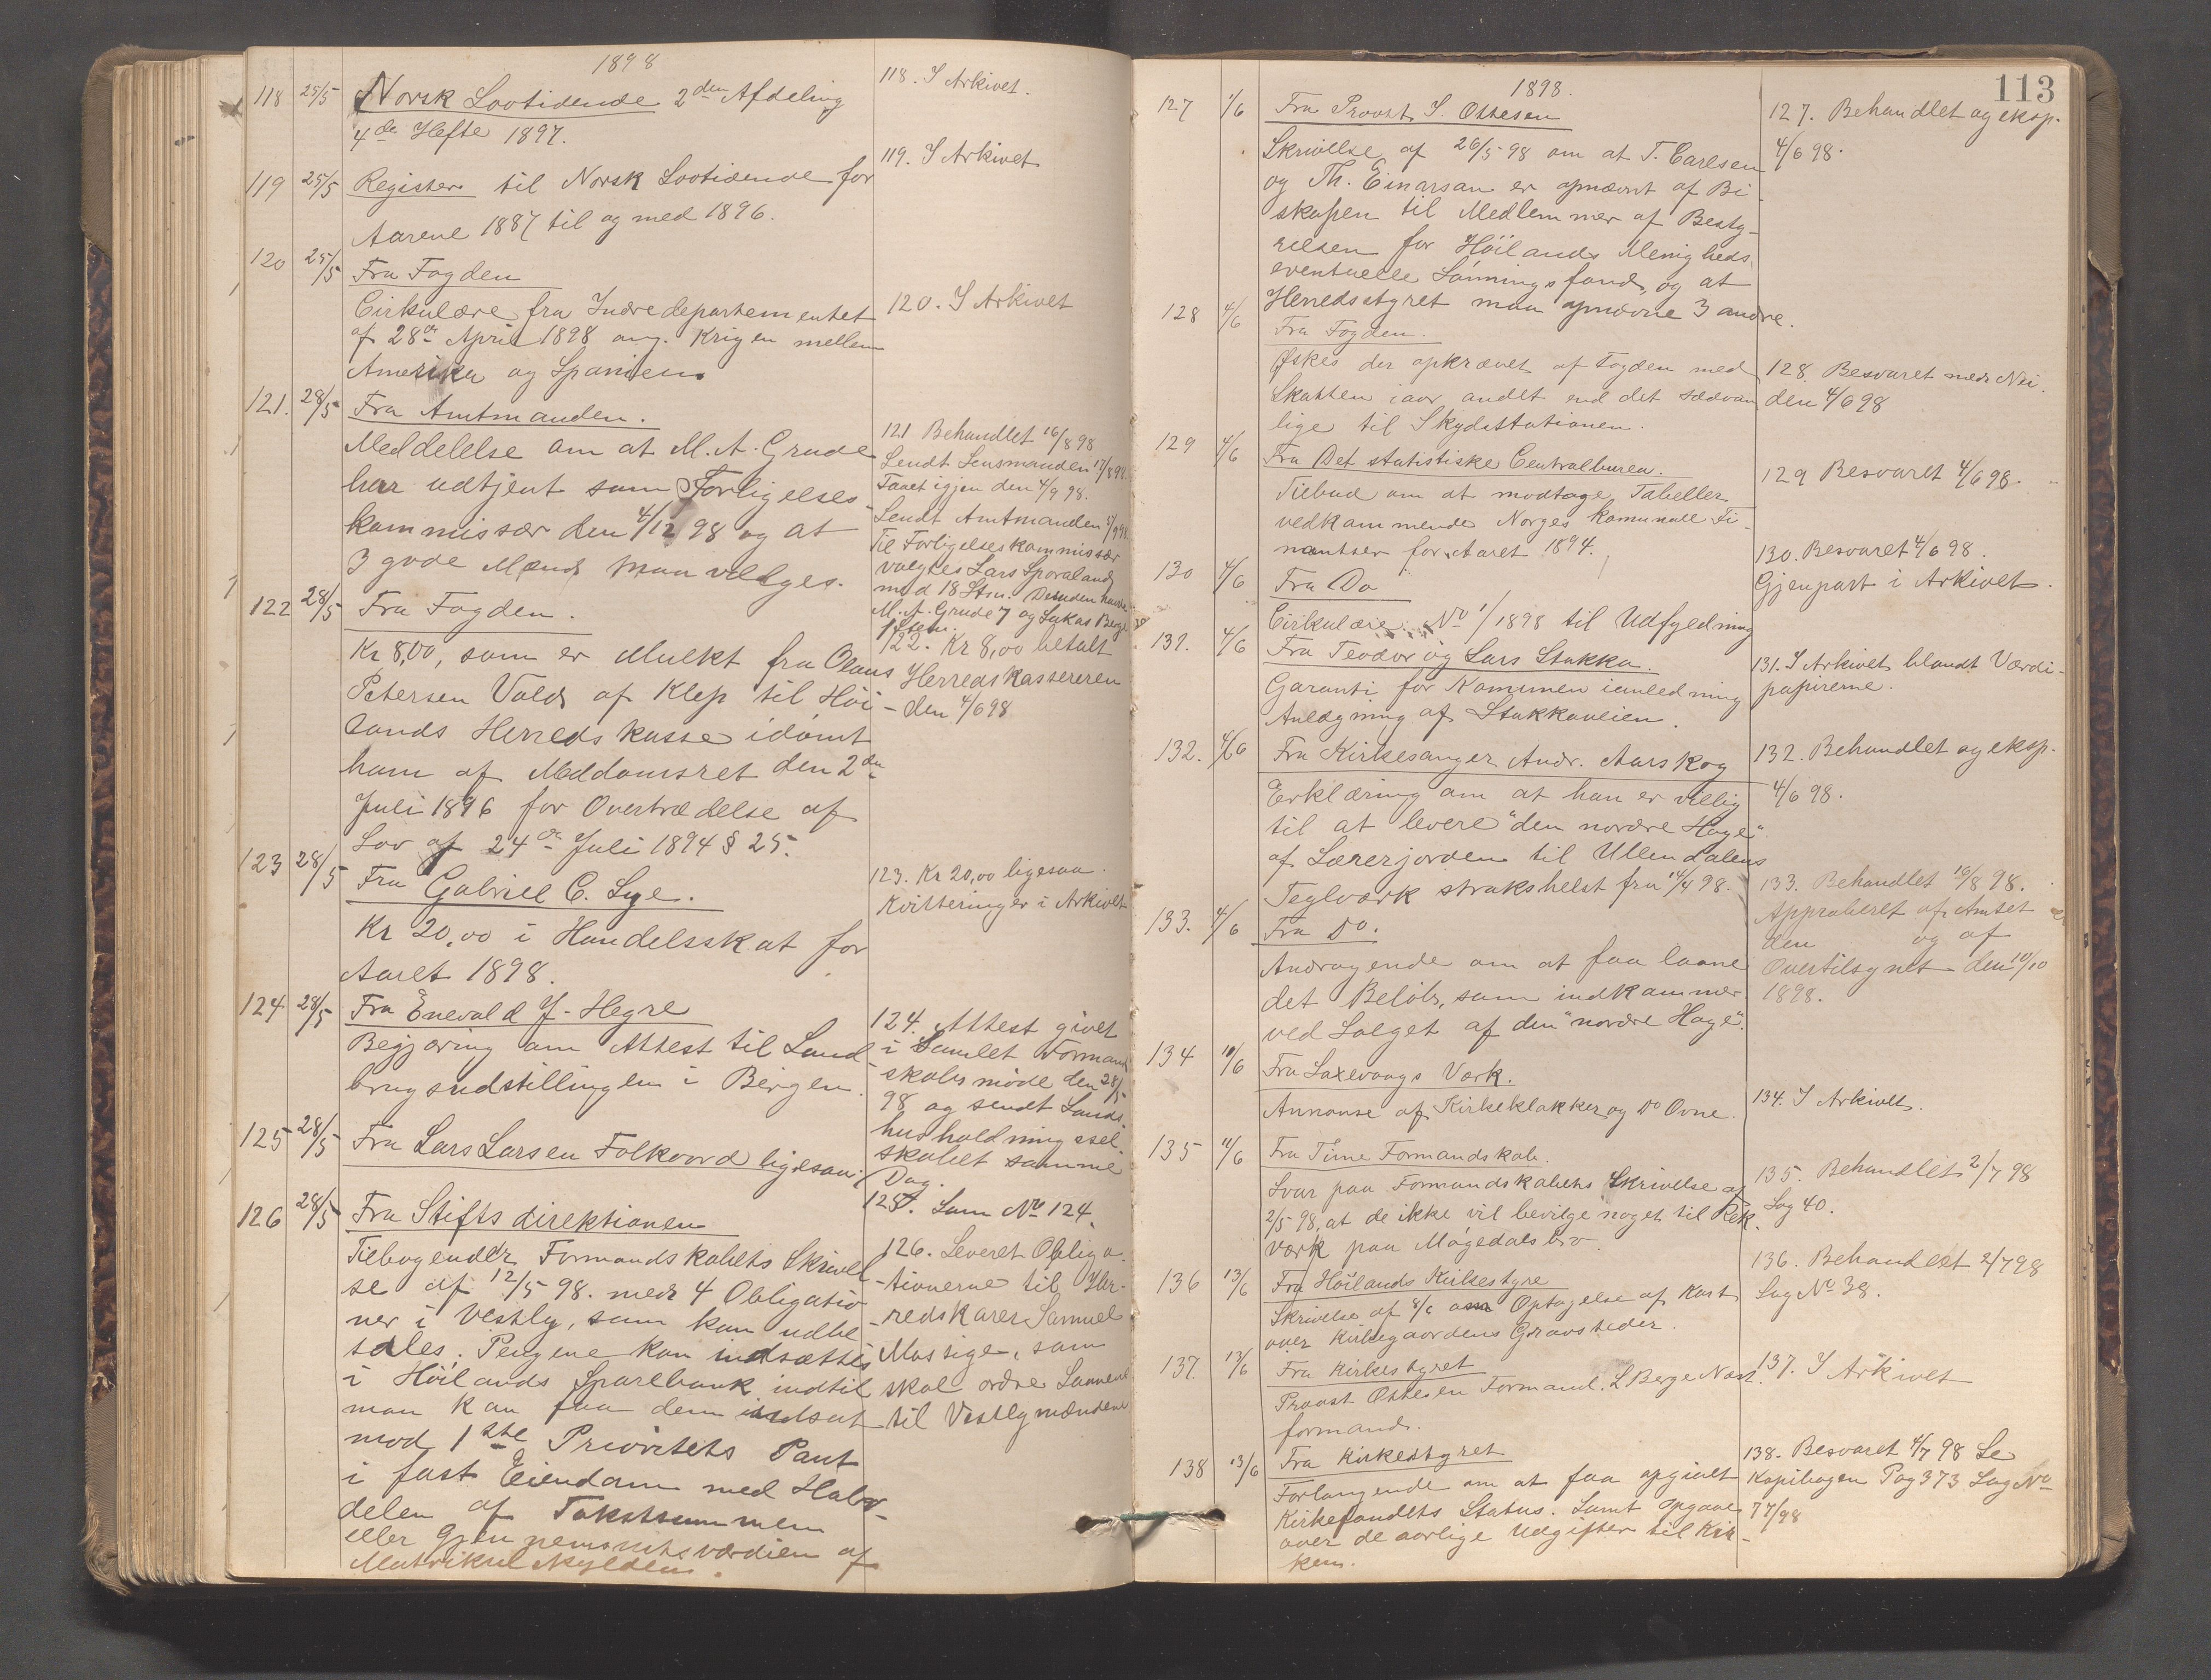 1898
118 25/5 Norsk Lovtidende 2den Afdeling
4de Hefte 1897.
118. I Arkivet.
119 25/5 Register til Norsk Lovtidende for
Aarene 1887 til og med 1896.
119. I Arkivet
120 25/5 Fra Fogden
Cirkulære fra Indredepartementet
af 28de April 1898 ang. Krigen mellem
Amerika og Spanien.
120. I Arkivet
121. 28/5 Fra Amtmanden.
Meddelelse om at M. A. Grude
har udtjent som Forligelses-
kommissær den 4/12 98 og at
3 gode Mænd maa vælges.
121 Behandlet 16/8 98
Sendt Lensmanden 17/8 98.
Faaet igjen den 4/9 98.
Sendt Amtmanden 5/9 98
Til Forligelseskommissær
valgtes Lars Sporaland
med 18 Stm. Desuden havde
M. A. Grude 7 og Lukas Berge
1 Stem.
122 28/5 Fra Fogden.
Kr 8,00, som er Mulkt fra Olaus
Petersen Vold af Klep til Höi-
lands Herredskasse idømt
ham af Meddomsret den 2den
Juli 1896 for Overtrædelse af
Lov af 24de Juli 1894 § 25.
122. Kr 8,00 betalt
Herredskassereren
den 4/6 98
123 28/5 Fra Gabriel C. Lye.
Kr 20,00 i Handelsskat for
Aaret 1898.
123. Kr 20,00 ligesaa.
Kvitteringer i Arkivet
124 28/5 Fra Enevald J. Hegre
Begjæring om Attest til Land-
brugsudstillingen i Bergen.
124. Attest givet
i Samlet Formand-
skabsmöde den 28/5
98 og sendt Lands-
husholdningssel-
skabet samme
Dag.
125 28/5 Fra Lars Larsen Folkvord ligesaa.
125. Som No 124.
126 28/5 Fra Stiftsdirektionen
Tilbagesender Formandskabets Skrivel-
se af 12/5 98. med 4 Obligatio-
ner i Vestly, som kan udbe-
tales. Pengene kan indsættes
i Höilands Sparebank indtil
man kan faa dem indsat
mod 1ste Prioritets Pant
i fast Eiendom med Halv-
delen af Takstsummen
eller Gjennemsnitsværdien af
Matrikulskylden.
126. Leveret Obliga-
tionerne til Her-
redskasser Samuel
Mossige, som
skal ordne Laanene
til Vestlymændene
113
1898.
127 1/6 Fra Provst S. Ottesen
Skrivelse af 26/5 98 om at T. Carlsen
og Th. Einarsan er opnævnt af Bi-
skopen til Medlemmer af Besty-
relsen for Höilands Menigheds
eventuelle Lönningsfond, og at
Herredsstyret maa opnævne 3 andre.
127. Behandlet og eksp.
4/6 98.
128 4/6 Fra Fogden.
Øskes der opkrævet af Fogden med
Skatten iaar andet end det sædvan-
lige til Skydsstationen.
128. Besvaret med Nei.
den 4/6 98
129 4/6 Fra Det statistiske Centralburea.
Tilbud om at modtage Tabeller
vedkommende Norges komunale Fi-
nantser for Aaret 1894.
129 Besvaret 4/6 98.
130 4/6 Fra Do
Cirkulære No 1/1898 til Udfyldning
130. Besvaret 4/6 98.
Gjenpart i Arkivet.
131. 4/6 Fra Teodor og Lars Stokka.
Garanti for Komunen ianledning
Anlægning af Stokkaveien.
131. I Arkivet blandt Værdi-
papirerne.
132. 4/6 Fra Kirkesanger Andr. Aarskog
Eerklæring om at han er villig
til at levere "den nordre Hage"
af Lærerjorden til Ullendalens
Teglværk strakshelst fra 14/4 98.
132. Behandlet og eksp.
4/6 98.
133. 4/6 Fra Do.
Andragende om at faa laane
det Belöb, som indkommer
ved Salget af den "nordre Hage".
133. Behandlet 16/8 98.
Approberet af Amtet
den og af
Overtilsynet den 10/10
1898.
134 10/6 Fra Laxevaags Værk.
Annonse af Kirkeklokker og Do Ovne.
134. I Arkivet.
135 11/6 Fra Time Formandskab.
Svar paa Formandskabets Skrivelse af
2/5 98, at de ikke vil bevilge noget til Rek-
værk paa Mågedals bro.
135. Behandlet 2/7 98
Sag 40.
136 13/6 Fra Höilands Kirkestyre
Skrivelse af 8/6 om Optagelse af Kart
over Kirkegaardens Gravsteder.
136. Behandlet 2/7 98
Sag No 38.
137. 13/6 Fra Kirkestyret
Provst Ottesen Formand. L Berge Næst-
formand.
137. I Arkivet
138 13/6 Fra Kirkestyret
Forlangende om at faa opgivet
Kirkefondets Status. Samt Opgave
over de aarlige Udgifter til Kir-
ken.
138. Besvaret 4/7 98 Se
Kopibogen Pag 373 Sag No
77/98